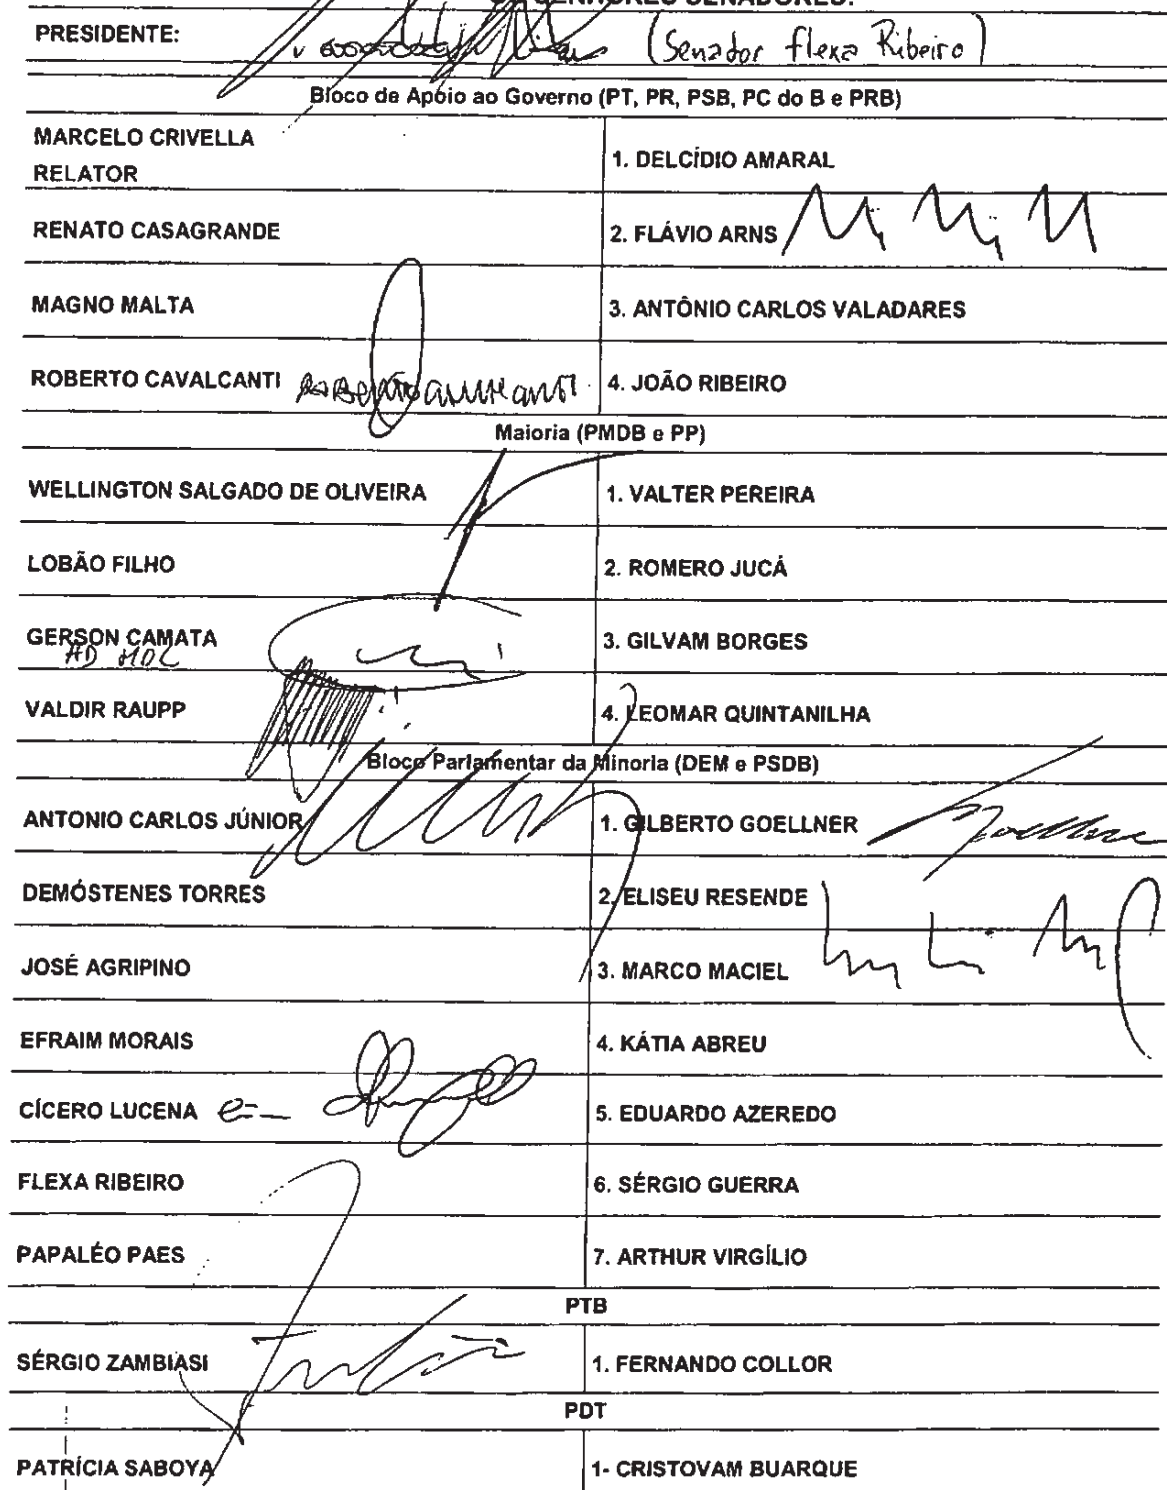 SENHORES SENADORES:
PRESIDENTE: (Senador Flexa Ribeiro)
Bloco de Apoio ao Governo (PT, PR, PSB, PC do B e PRB)
MARCELO CRIVELLA
RELATOR
1. DELCÍDIO AMARAL
RENATO CASAGRANDE
2. FLÁVIO ARNS
MAGNO MALTA
3. ANTÔNIO CARLOS VALADARES
ROBERTO CAVALCANTI
4. JOÃO RIBEIRO
Maioria (PMDB e PP)
WELLINGTON SALGADO DE OLIVEIRA
1. VALTER PEREIRA
LOBÃO FILHO
2. ROMERO JUCÁ
GERSON CAMATA
AD HOC
3. GILVAM BORGES
VALDIR RAUPP
4. LEOMAR QUINTANILHA
Bloco Parlamentar da Minoria (DEM e PSDB)
ANTONIO CARLOS JÚNIOR
1. GILBERTO GOELLNER
DEMÓSTENES TORRES
2. ELISEU RESENDE
JOSÉ AGRIPINO
3. MARCO MACIEL
EFRAIM MORAIS
4. KÁTIA ABREU
CÍCERO LUCENA
5. EDUARDO AZEREDO
FLEXA RIBEIRO
6. SÉRGIO GUERRA
PAPALÉO PAES
7. ARTHUR VIRGÍLIO
PTB
SÉRGIO ZAMBIASI
1. FERNANDO COLLOR
PDT
PATRÍCIA SABOYA
1- CRISTOVAM BUARQUE